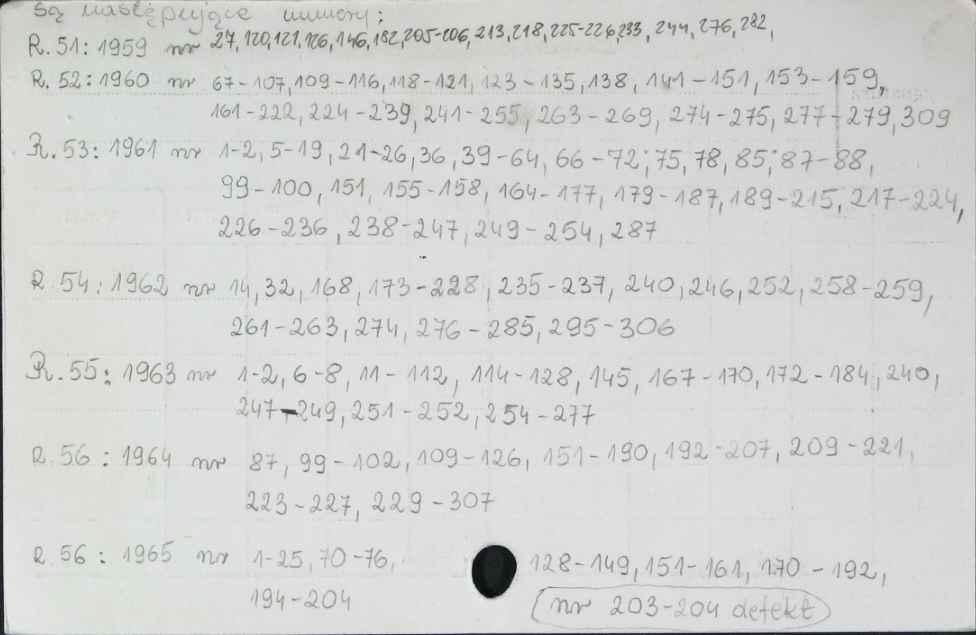 są następujące numery:
R. 51: 1959 nr 27, 120, 121, 126, 146, 182, 205-206, 213, 218, 225-226, 233, 244, 276, 282,
R. 52: 1960 nr 67-107, 109-116, 118-121, 123-135, 138, 141-151, 153-159,
161-222, 224-239, 241-255, 263-269, 274-275, 277-279, 309
R. 53: 1961 nr 1-2, 5-19, 21-26, 36, 39-64, 66-72; 75, 78, 85; 87-88,
99-100, 151, 155-158, 164-177, 179-187, 189-215, 217-224,
226-236, 238-247, 249-254, 287
R. 54: 1962 nr 14, 32, 168, 173-228, 235-237, 240, 246, 252, 258-259,
261-263, 274, 276-285, 295-306
R. 55: 1963 nr 1-2, 6-8, 11-112, 114-128, 145, 167-170, 172-184, 240,
247-249, 251-252, 254-277
R. 56: 1964 nr 87, 99-102, 109-126, 151-190, 192-207, 209-221,
223-227, 229-307
R. 56: 1965 nr 1-25, 70-76, 128-149, 151-161, 170-192,
194-204 (nr 203-204 defekt)